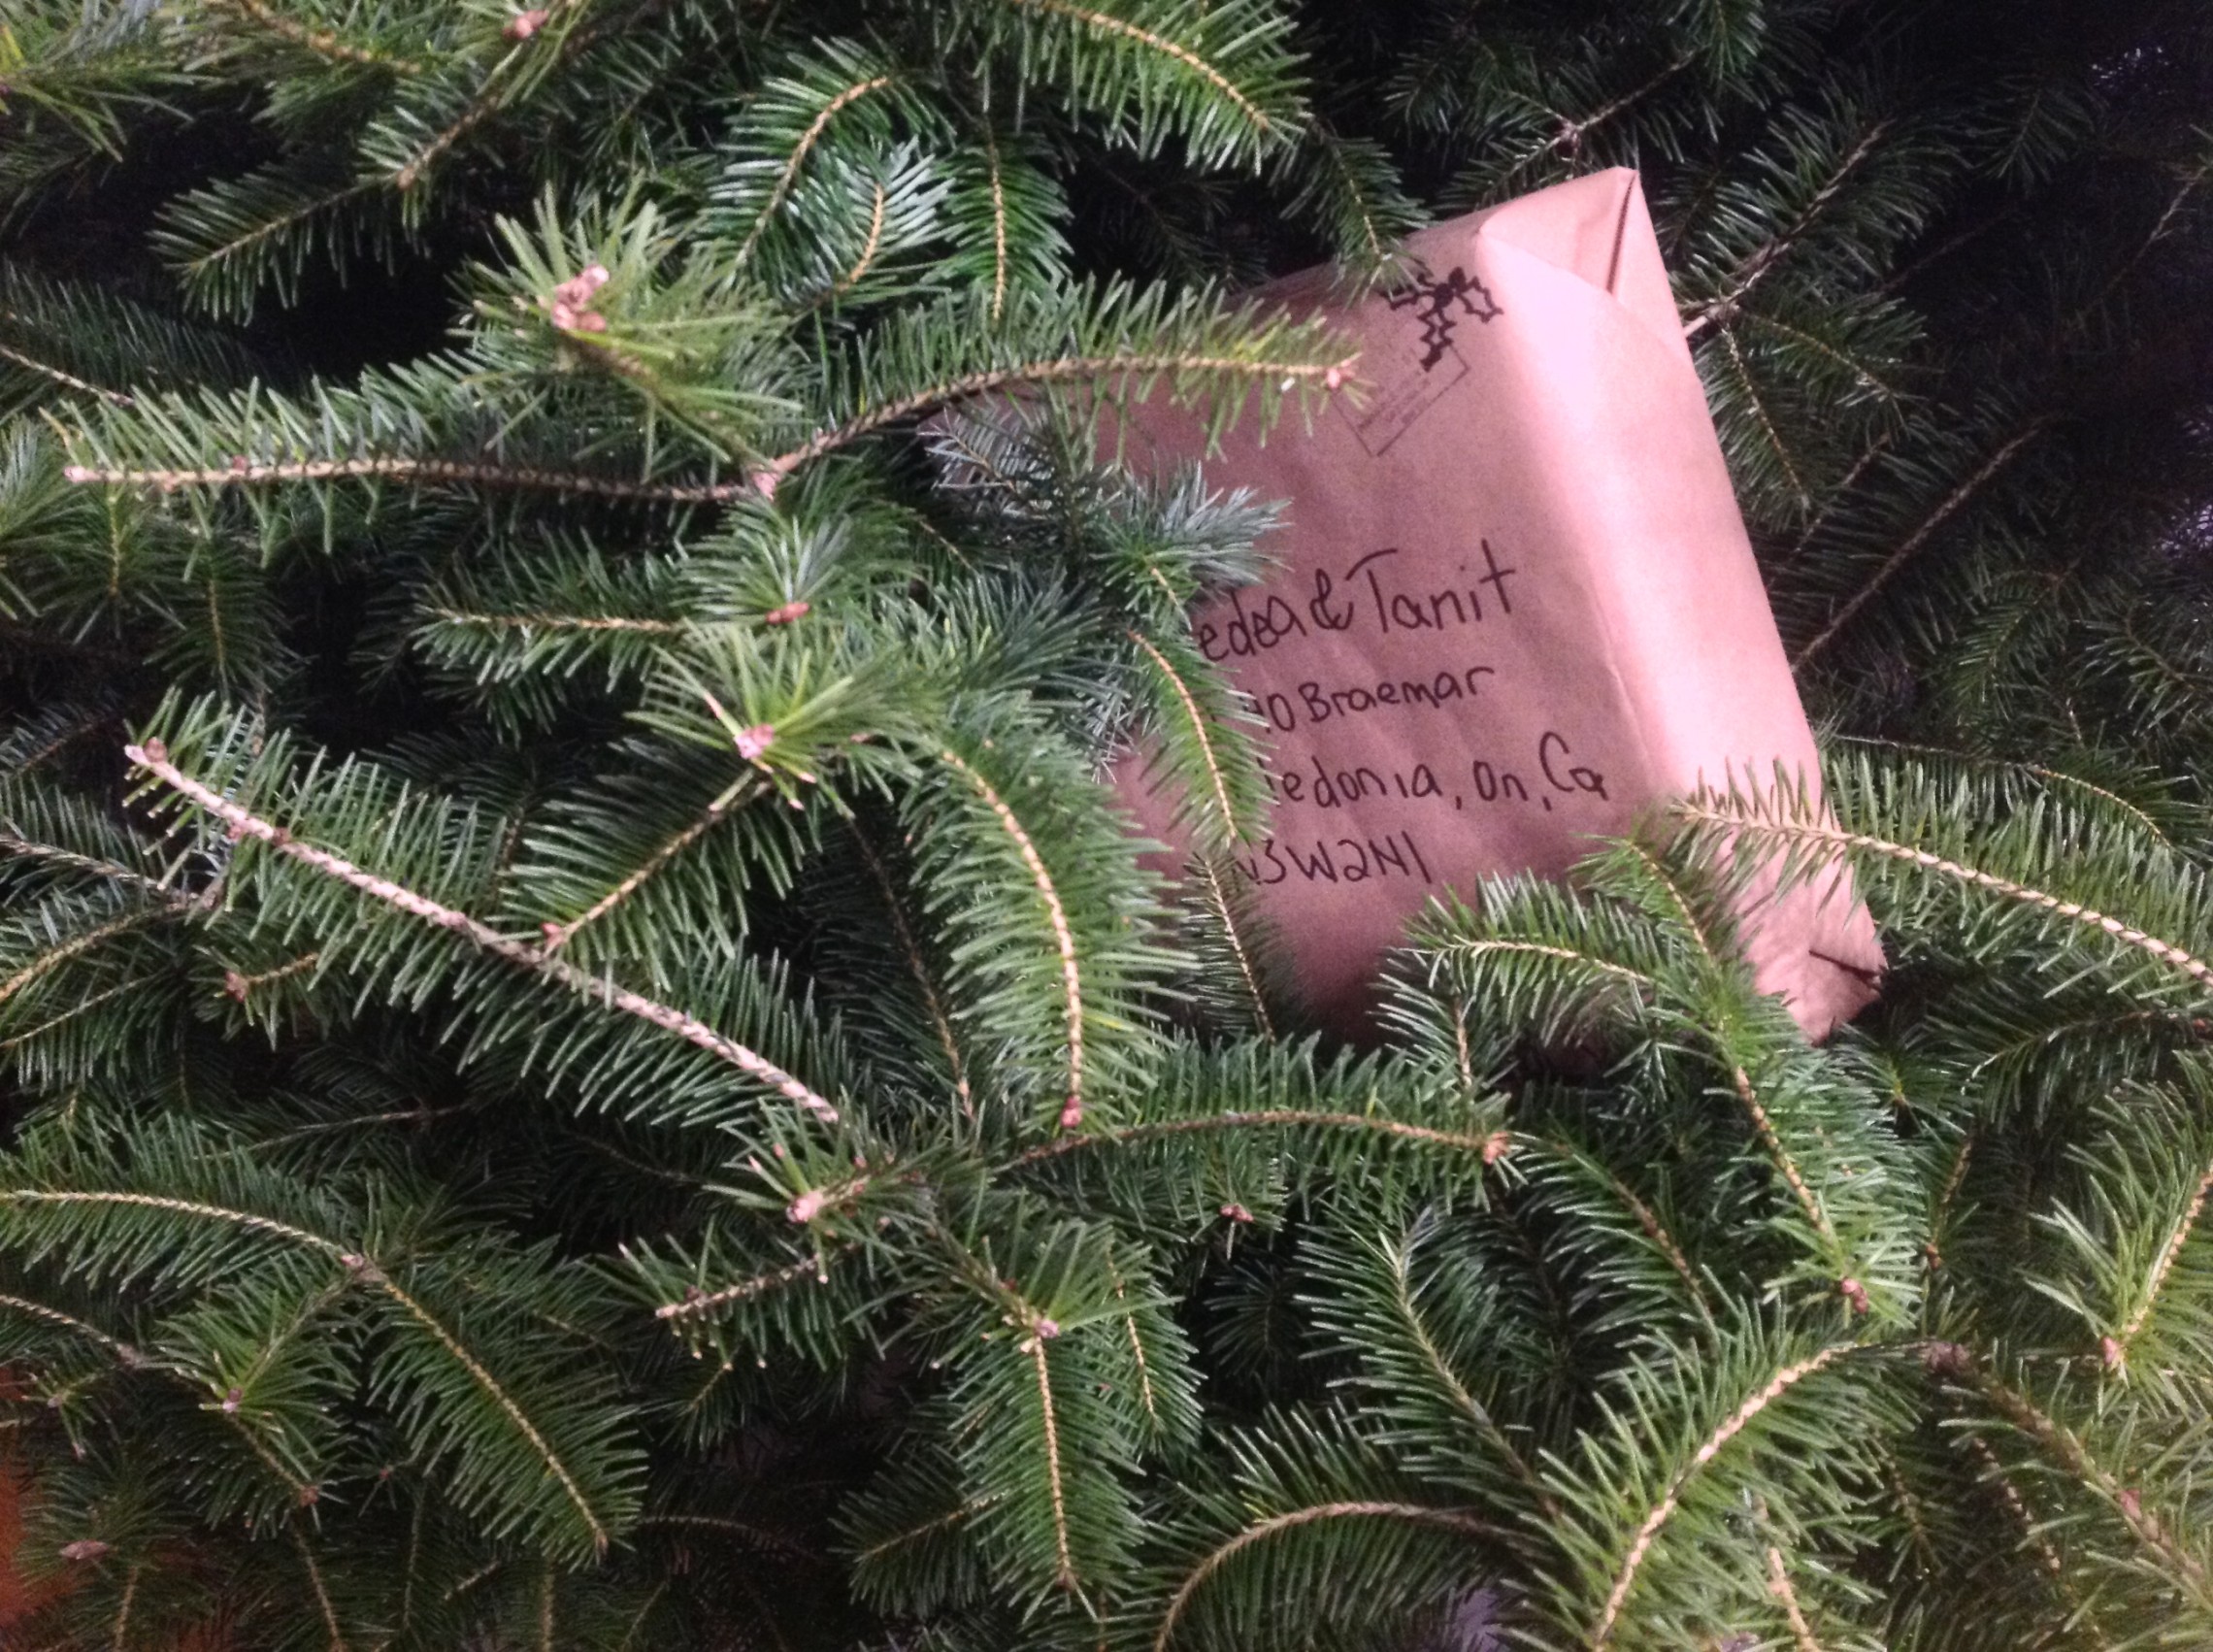 edea & Tanit
40 Braemar
ledonia, On, Ca
N3W2N1